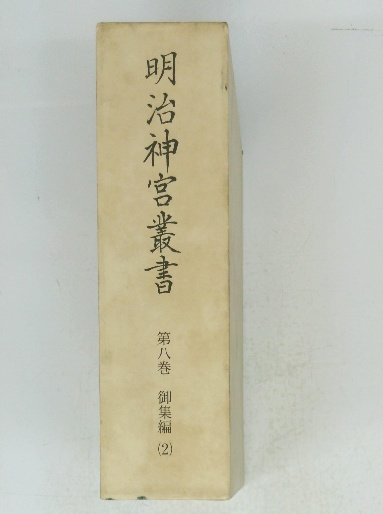 明治神宮叢書
第八巻 御集編(2)